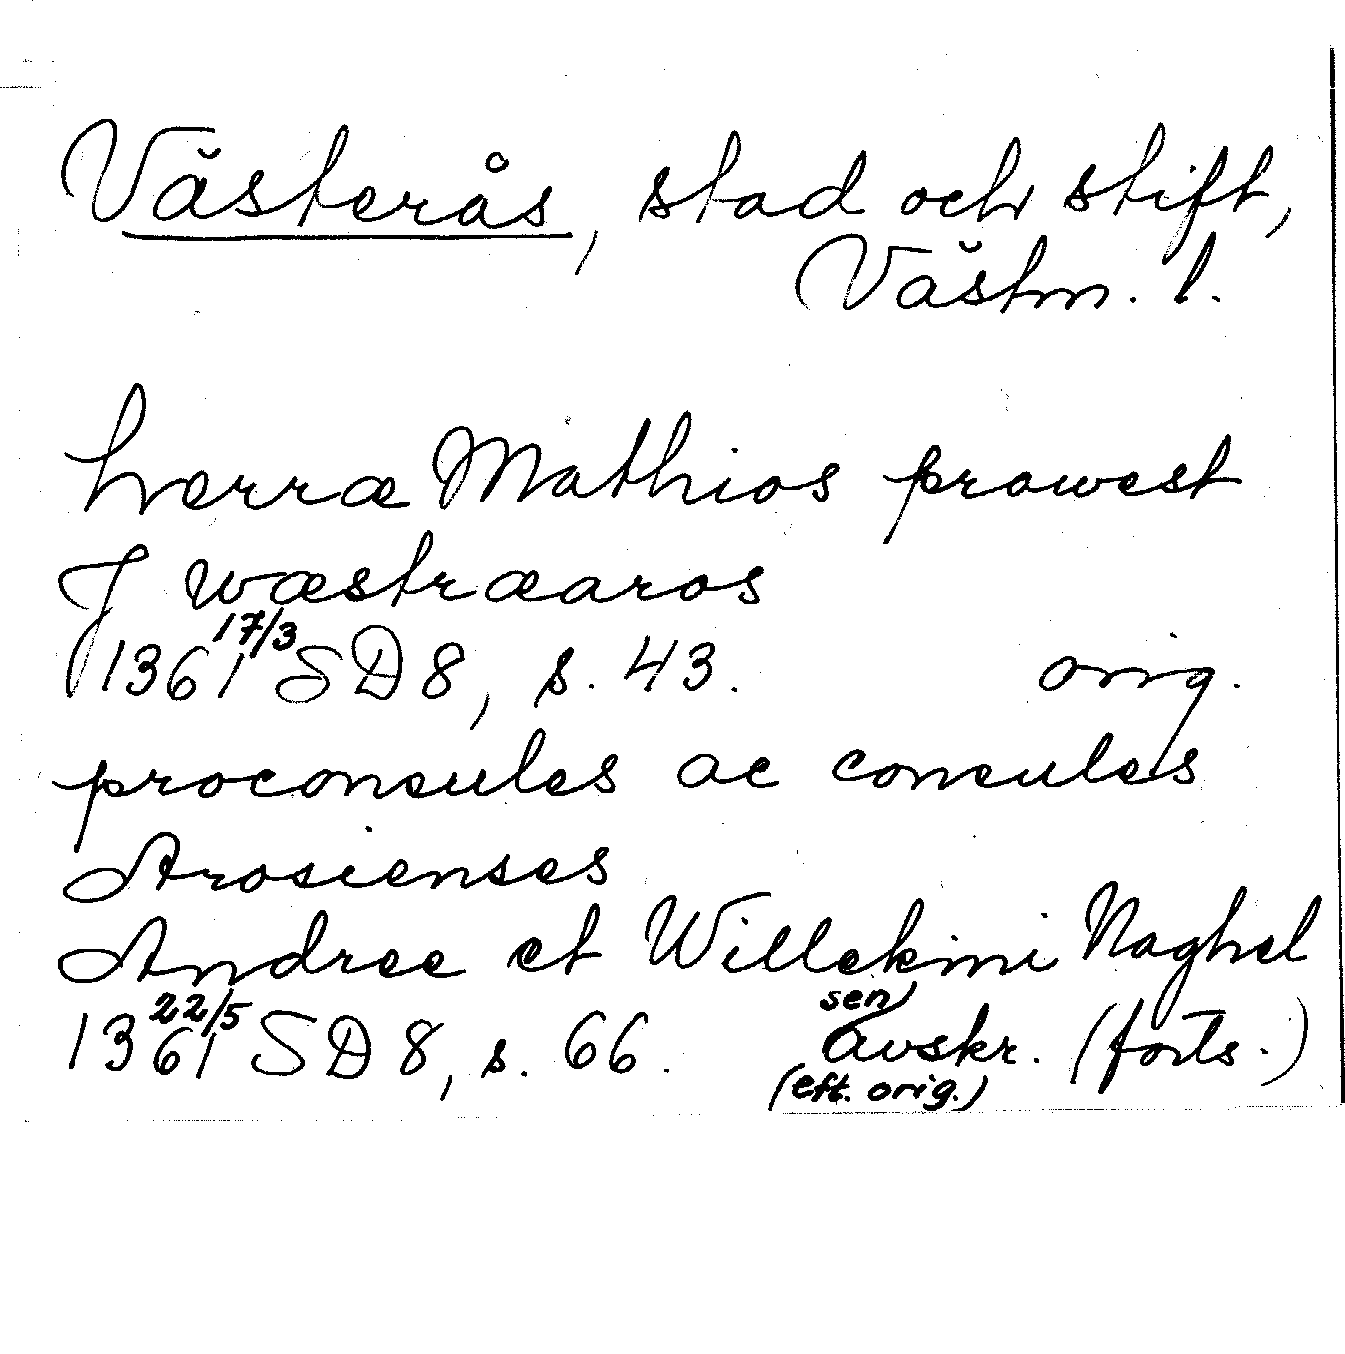 Västerås, stad och stift,
Västm. l.
herræ Mathios prowest
J wæstræaros
1361 17/3 SD 8, s. 43. orig.
proconsules ac consules
Arosienses
Andree et Willekini Naghel
1361 22/5 SD 8, s. 66. sen avskr. (forts.)
(eft. orig.)